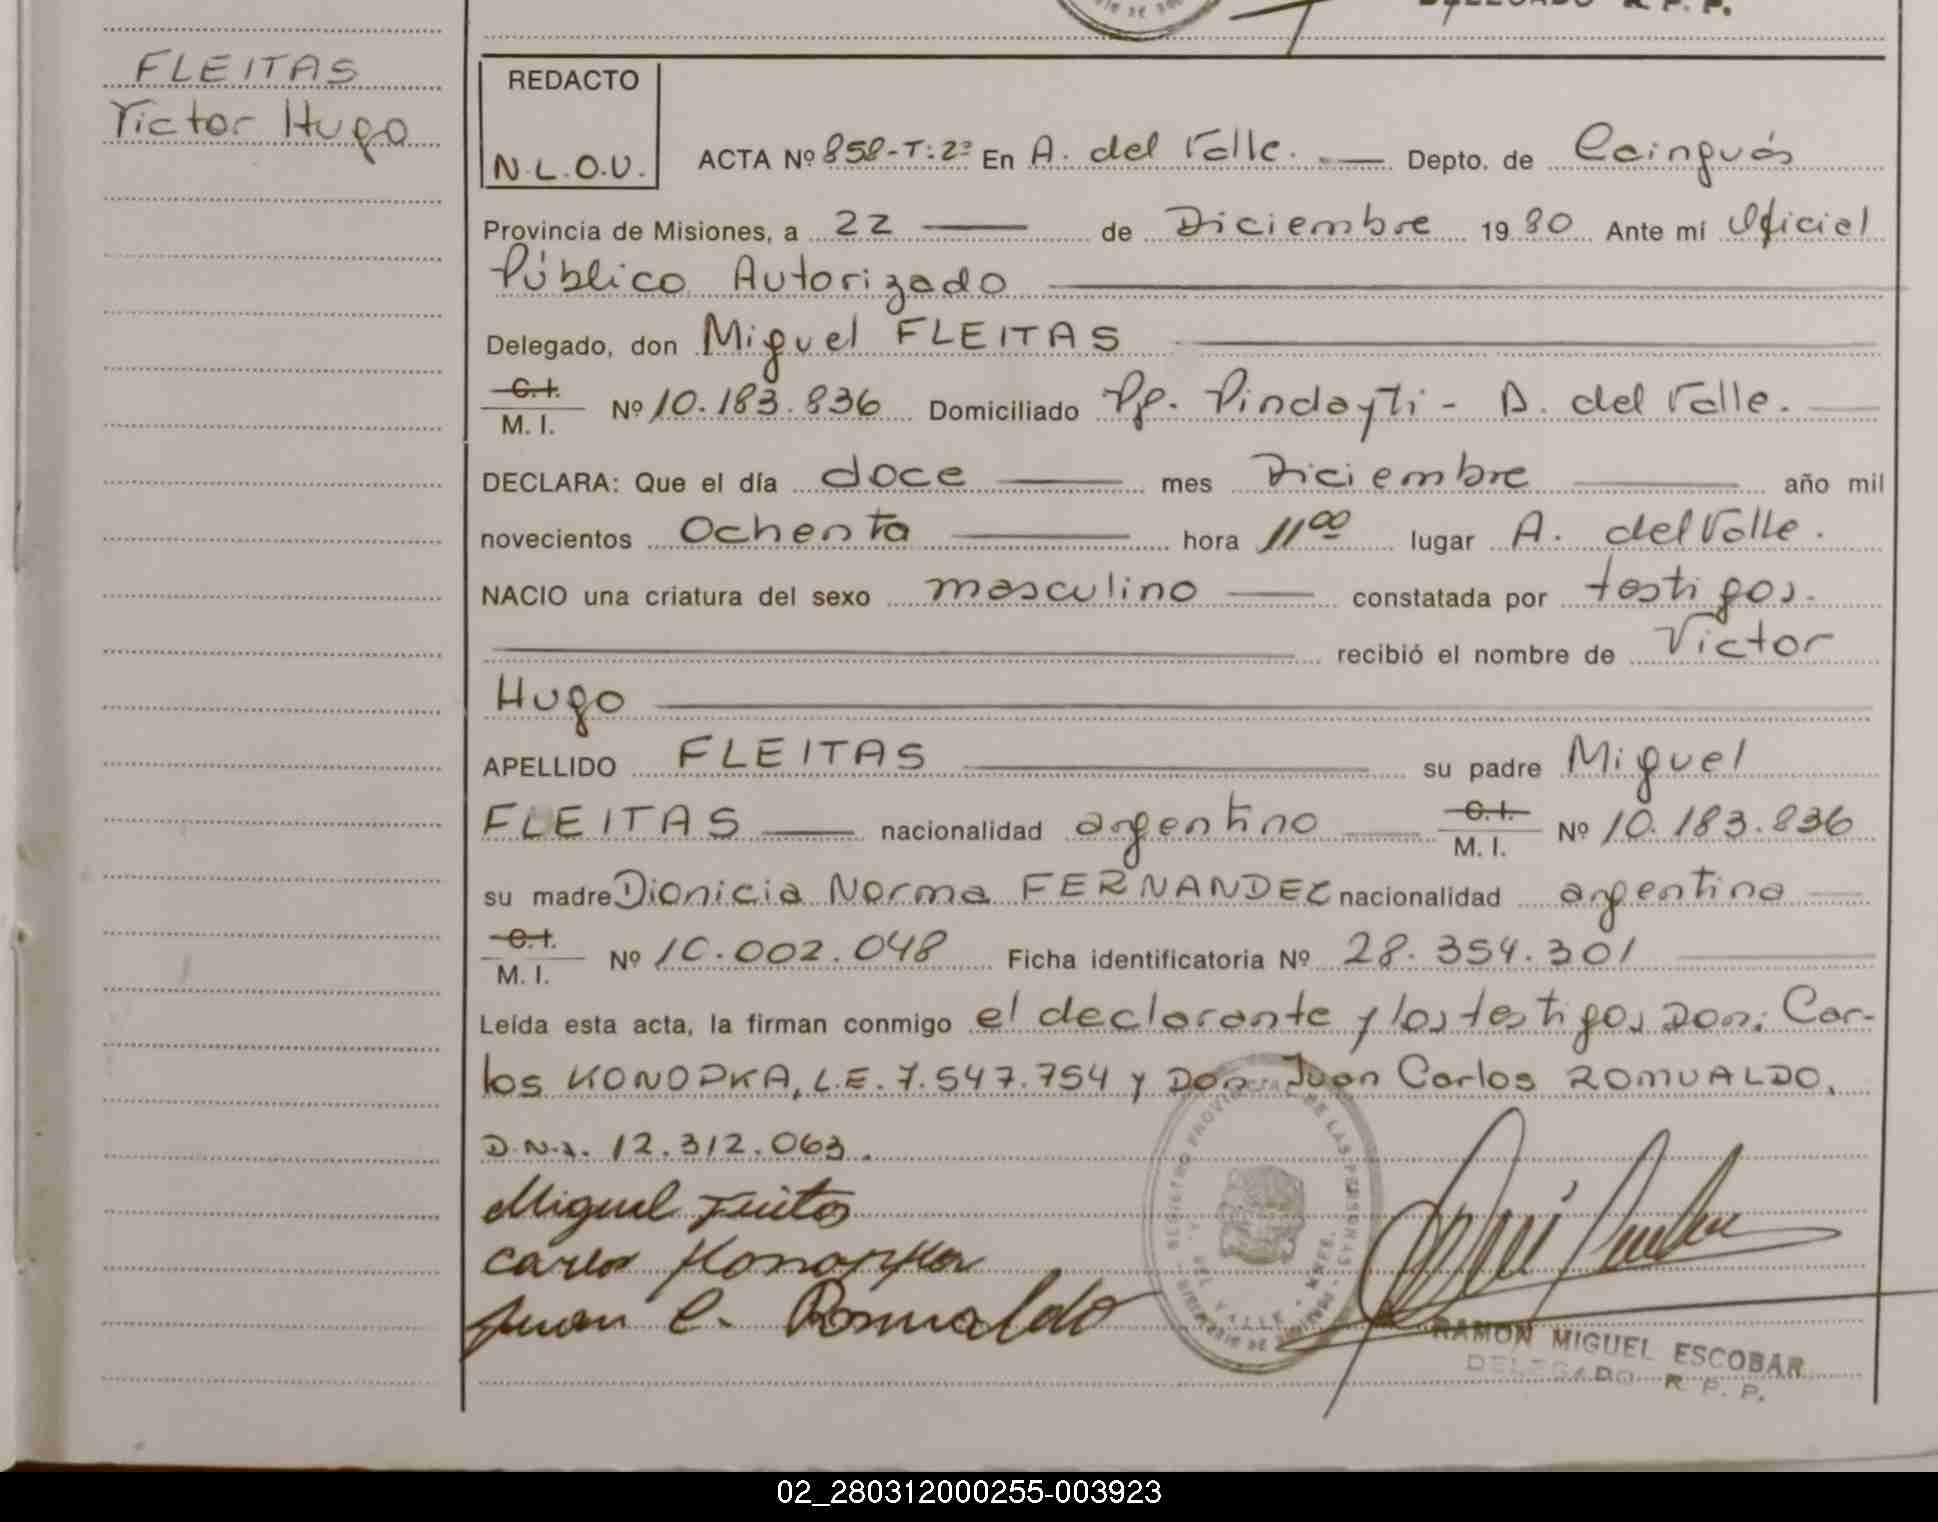 DELEGADO R. P. P.
FLEITAS
Victor Hugo
REDACTO
N.L.O.U.
ACTA Nº 858-T:2º En A. del Valle. Depto. de Cainguás
Provincia de Misiones, a 22 de Diciembre 1980 Ante mí Oficial
Público Autorizado
Delegado, don Miguel FLEITAS
C.I.
M. I. Nº 10.183.836 Domiciliado Pje. Pindayti - A. del Valle.
DECLARA: Que el día doce mes Diciembre año mil
novecientos Ochenta hora 11 00 lugar A. del Valle.
NACIO una criatura del sexo masculino constatada por testigos.
recibió el nombre de Victor
Hugo
APELLIDO FLEITAS su padre Miguel
FLEITAS nacionalidad argentino C.I. M. I. Nº 10.183.836
su madre Dionicia Norma FERNANDEZ nacionalidad argentina
C.I.
M. I. Nº 10.002.048 Ficha identificatoria Nº 28.354.301
Leída esta acta, la firman conmigo el declarante y los testigos Don: Car-
los KONOPKA, L.E. 7.547.754 y Don Juan Carlos ROMUALDO,
D.N.I. 12.312.063.
Miguel Fleitas
Carlos Konopka
Juan C. Romualdo
REGISTRO PROVINCIAL DE LAS PERSONAS
DEL VALLE - MNES.
RAMON MIGUEL ESCOBAR
DELEGADO R. P. P.
02_280312000255-003923